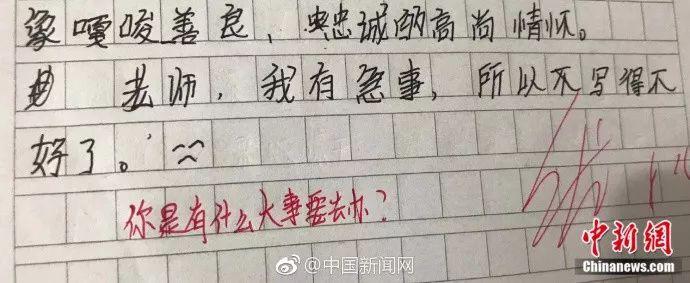 象嘎唆善良，忠诚的高尚情怀。
老师，我有急事，所以不写得不
好了。
你是有什么大事要去办？
中新网
Chinanews.com
@中国新闻网